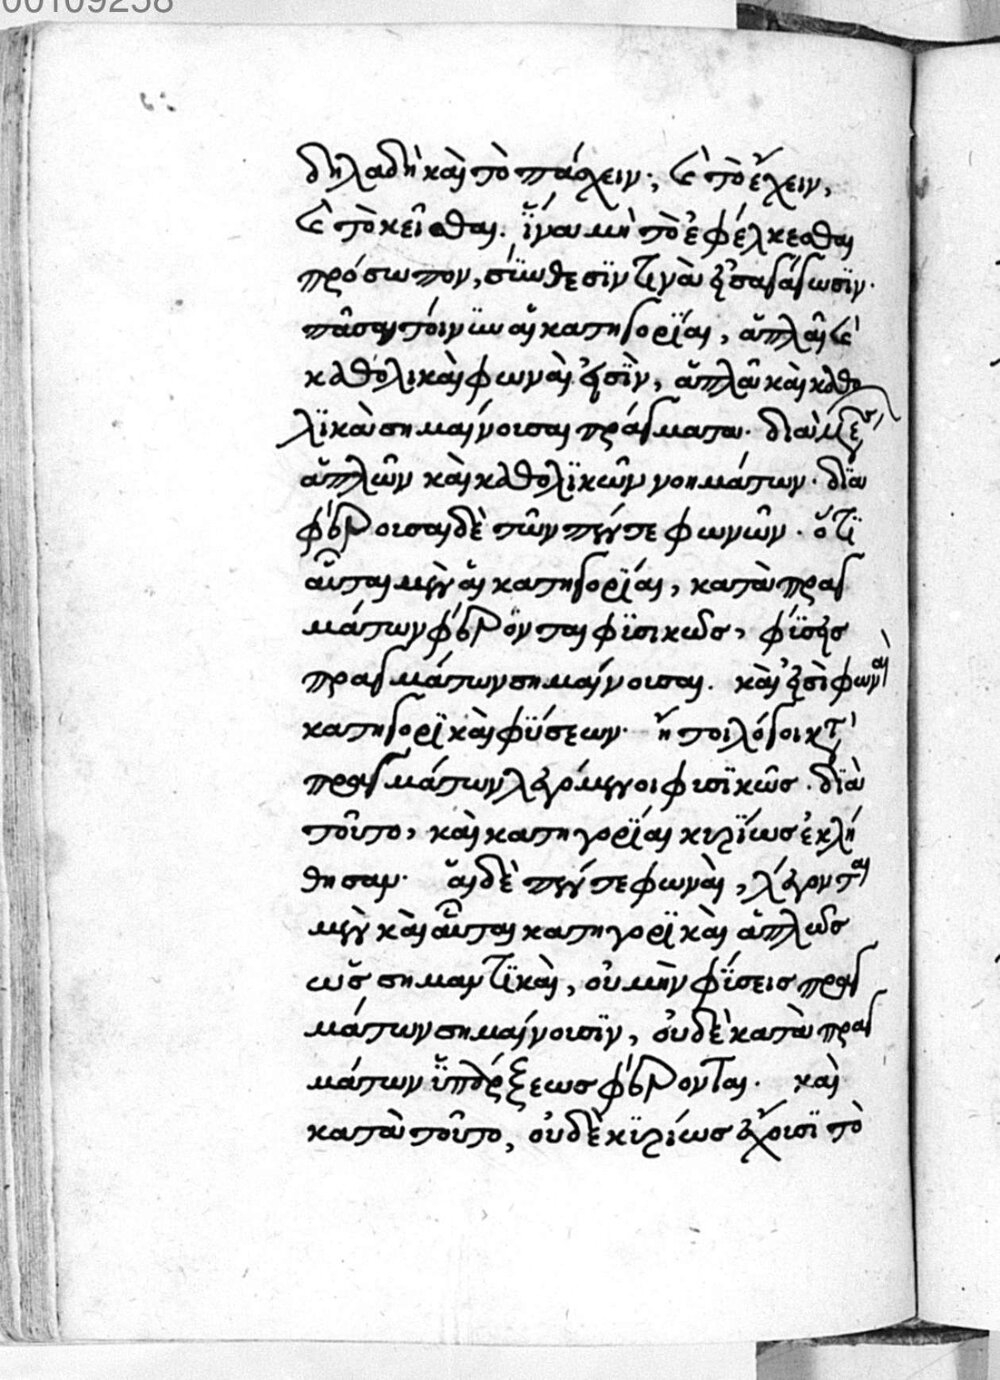 00109258
δηλαδὴ καὶ τὸ πάσχειν·, καὶ τὸ ἔχειν,
καὶ τὸ κεῖσθαι. ἵνα μὴ τὸ ἐφέλκεσθαι
πρόσωπον, σύνθεσίν τινὰ εἰσαγάγωσϊν·
πᾶσαι τόινϋν αἱ κατηγορΐαι, ἁπλαῖ καὶ
καθολικαὶ φωναὶ εἰσῒν, ἁπλᾶ καὶ καθο
λϊκὰ σημαίνουσαι πράγματα· διὰ μέσ
ἁπλῶν καὶ καθολϊκῶν νοημάτων· δϊα
φέρουσαι δὲ τῶν πέντε φωνῶν· ὅτϊ
αὗται μὲν αἱ κατηγορΐαι, κατὰ πραγ
μάτων φέρονται φϋσικῶς, φύσεις
πραγμάτων σημαίνουσαι. καὶ εἰσὶ φωναὶ
κατηγορϊκαὶ φύσεων· ἤτοι λόγοι κτ
πραγμάτων λεγόμενοι φυσϊκῶς· δϊὰ
τοῦτο, καὶ κατηγορΐαι κυρΐως ἐκλή
θησαν· αἱ δὲ πέντε φωναὶ, λέγονται
μὲν καὶ αὗται κατηγορϊκαὶ ἁπλῶς
ὡς σημαντϊκαὶ, οὐ μὴν φύσεις πραγ
μάτων σημαίνουσϊν, οὐδὲ κατὰ πραγ
μάτων ὑπάρξεως φέρονται· καὶ
κατὰ τοῦτο, οὐδὲ κϋρίως ἔχουσϊ τὸ